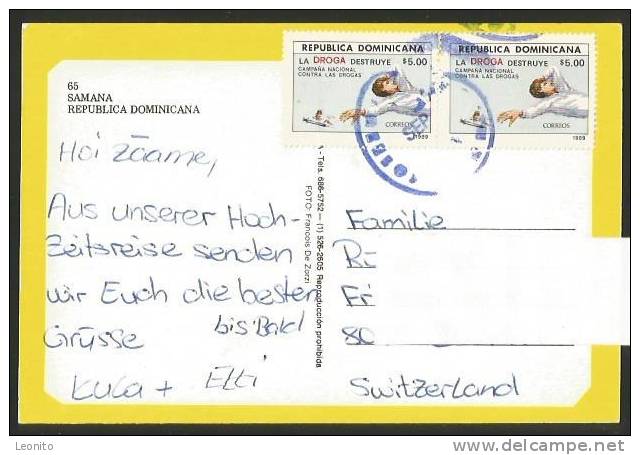 65
SAMANA
REPUBLICA DOMINICANA
REPUBLICA DOMINICANA
LA DROGA DESTRUYE
CAMPAÑA NACIONAL
CONTRA LAS DROGAS
$5.00
CORREOS
1989
REPUBLICA DOMINICANA
LA DROGA DESTRUYE
CAMPAÑA NACIONAL
CONTRA LAS DROGAS
$5.00
CORREOS
1989
Hoi zäme,
Aus unserer Hoch-
Zeitsreise senden
wir Euch die besten
Grüsse bis Bald
Kuka + Elli
- Tels. 686-5752 - (1) 526-2605 Reproducción prohibida
FOTO: Francois De Zorzi
Familie
Ri
Fr
80
Switzerland
Leonito
www.delcampe.net